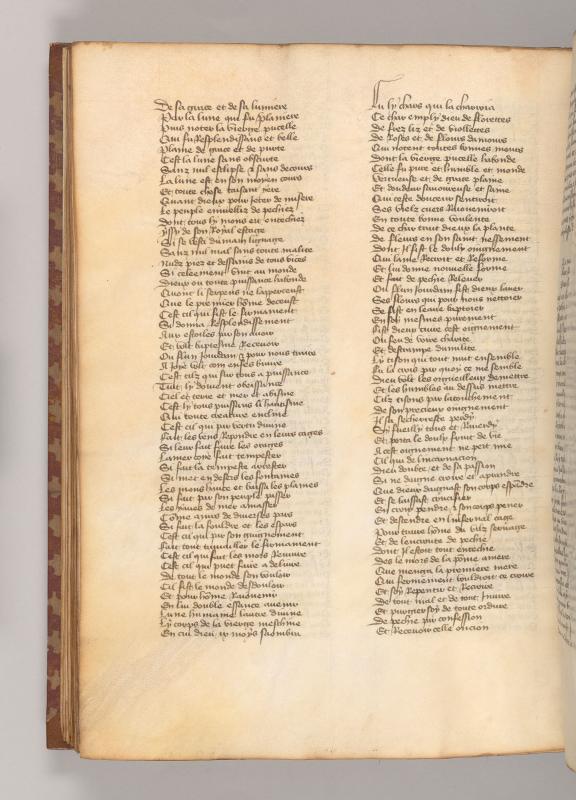 De sa grace et de sa lumiere
Par la lune qui fu planiere
Puis noter la vierge pucelle
Qui fu resplendissans et belle
Plaine de grace et de purte
Cest la lune sans obscurte
Sanz nul esclipse & sans decours
La lune est en son moyen cours
Et toute chose faisant
Quant dieux pour jeter de misere
Le peuple envieilliz de pechiez
Dont tous ly mons en entechiez
Yssy de son Royal estage
Si se vesti dumain lignage
Sanz nul mal sans toute malice
Nudz piez et dessains de tous vices
Si celeement vint au monde
Dieux ou toute puissance habonde
Quonc li serpens ne lapperceust
Que le premier home deceust
Cest cil qui fist le firmament
Si donna Resplendissement
Aux estoiles par son avoir
Et volt baptesme Recevoir
Ou flun Jourdain & pour nous vivre
A joye volt com enses livre
Cest cilz qui sur tous a puissance
Tuit ly doivent obeissance
Ciel et terre et mer et abisme
Cest ly tous puissans li haultisme
Qui toute creature encline
Cest cil qui par vertu divine
Fait les vens Repondre en leurs cages
Si leur fait faire les orages
La mer tout fait tempester
Si fait la tempeste arrester
Si met en desers les fontaines
Les mons haulce et baisse les plaines
Si fait par son peuple passer
Les haves de mer amasser
Come amas de diverses pars
Si fait la fouldre et les espars
Cest cil qui par son guignement
Fait tout tignailler le firmament
Cest cil qui fait les mors Revivre
Cest cil qui puet faire a delivre
De tout le monde son vouloir
Cil fist le monde desdouloir
Et pour home Ravoiier
En lui double essance avenir
Lune humaine lautre divine
Ly corps de la vierge meschine
En cui dieu, moys saombra
Fu ly chars qui la charroia
Ce char emply dieu de florettes
De frez liz et de violettes
De Roses et de flours damours
Qui notent toutes bonnes mours
Dont la vierge pucelle habonde
Celle fu pure et humble et monde
Vertueuse et de grace plaine
Et doudeur savoureuse et saine
Qui ceste doulceur sentiront
Ses vielz cuers Raieuniront
En toute bonne voulente
De ce char truit dieux la plante
De fleurs en son saint nessement
Dont Il fist le doulz oingnement
Qui lame Recroit et Reforme
Et lui donne nouvelle forme
Et fait de pechie Relever
Ou flun Jourdain fist dieux laver
Ses flours qui pour nous nettoier
Se fist en leaue baptoier
En soy mesmes purement
Fist dieux cuire cest oignement
Ou feu de vraie charite
Et destrampe dumilite
Ly tison qui tout mut ensemble
Fu la crois par quoy ce me semble
Dieu volt les orgueilleux demettre
Et les humbles au dessus mettre
Cilz tisons par latouchement
De son precieux oingnement
Il sa secheresse perdy
Sy fueilly tous et Raverdy
Et porta le doulz fruit de vie
A cest oignement ne peit mie
Cil qui de lincarnacion
Dieu doubte, et de sa passion
Si ne daigne croire et aprandre
Que dieux daignast son corps espandre
Et se laissast crucifier
En croix pendre, & son corps pener
Et descendre en linfernal cage
Pour traire home du vilz servaige
Et de lencontre de pechie
Dont Il estoit tout entechie
Des le mors de la pome amere
Que menga la premiere mere
Qui fermement vouldroit ce croire
Et soy Repentir et Recroire
De tout mal et de tout Injure
Et purgier soy de toute ordure
De pechie par confession
Et Recevoir celle oncion